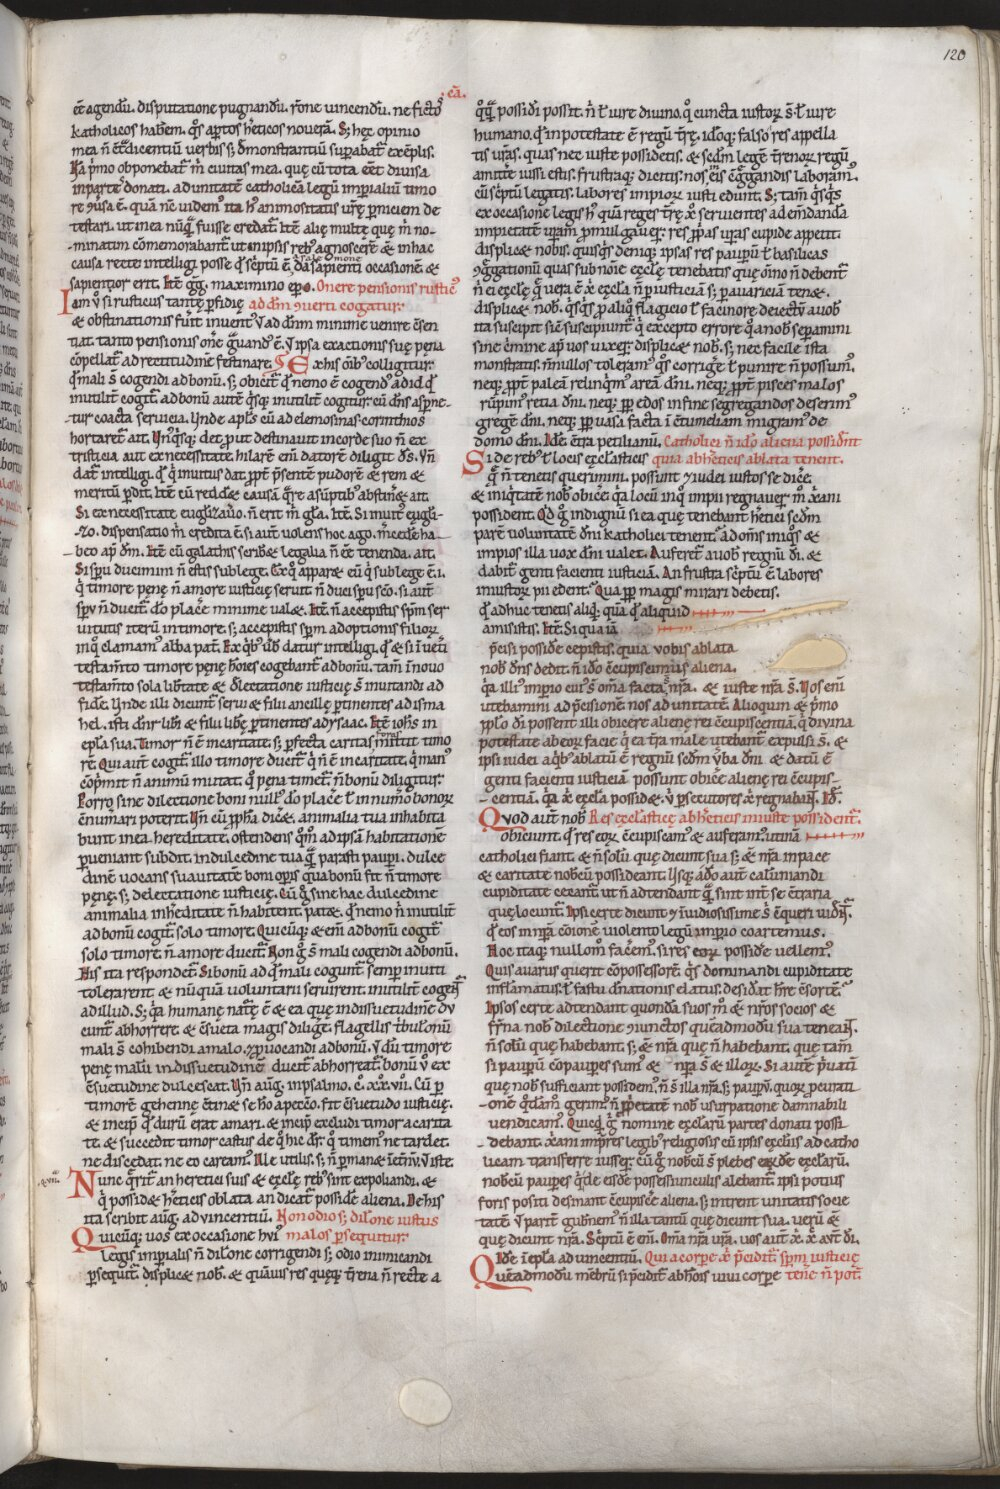 120
eā.
eē agendū. disputatione pugnandū. rōne uincendū. ne fictos
katholicos haberem. qͦs aptos hereticos noueram. Sꝫ hec opinio
mea n̄ dicentiū uerbis sꝫ demonstrantiū superabat᷑ exēplis.
Nā pͥmo obponebat᷑ m̄ ciuitas mea. que cū tota eēt diuisa
in parte donati. ad unitatē catholicā legū imperialiū timo
re ɔuersa ē. quā nc̄ videmꝰ ita hͦ animositatis urē perniciem de
testari. ut in ea nūq̄ fuisse credat᷑. Itē alię multę quę m̄ no-
minatim cōmemorabant᷑ ut in ipsis rebꝰ agnoscerē & in hac
causa recte intelligi posse qd̄ scͥptū ē. da sapienti occasionē &
sapientior erit. Itē gḡ. maximino ep̄o. Onere pensionis rusticꝰ
Iam v̄ si rusticus tantę perfidię ad dn̄m ɔuerti cogatur.
& obstinationis fuerit inuentꝰ ut ad dn̄m minime uenire ɔsen
tiat. tanto pensionis onere grauandꝰ ē. ut ipsa exactionis suę pęna
cōpellat᷑ ad rectitudinē festinare. Ex his omībꝰ colligitur
qd̄ mali s̄ cogendi ad bonū. sꝫ obicit᷑ qd̄ nemo ē cogendꝰ ad id qd̄
inutilit᷑ cogit᷑. ad bonū autē qͥsqꝫ inutilit᷑ cogitur. cū dn̄s asperne-
tur coacta seruicia. Unde apl̄s cū ad elemosinas corinthios
hortaret᷑ ait. Unqͥsqꝫ det prout destinauit in corde suo n̄ ex
tristicia aut ex necessitate. hilarē enī datorē diligit dꝰ. Un̄
dat᷑ intelligi. qd̄ qͥ inuitus dat ꝓpt p̄sentē pudorē & rem &
meritū perdit. Itē cū reddēt causā qͣre asūptibꝰ abstinēt ait.
Si ex necessitate eugl̄izauero. n̄ erit m̄ gl̄a. Itē. Si inuitꝰ eugli-
zo. dispensatio m̄ credita ē. si aut̄ uolens hoc ago. mercedē ha
beo ap̄ dn̄m. Itē cū galathis scriberet legalia n̄ eē tenenda. ait.
Si spū ducimini n̄ estis sub lege. Ex quo apparet eū qͥ sub lege ē. i.
qͥ timore penę n̄ amore iusticię seruit n̄ duci spū sc̄o. si aut̄
spū n̄ ducit᷑ dō placere minime ualet. Itē. n̄ accepistis spm̄ ser
uitutis iterū in timore. sꝫ accepistis spm̄ adoptionis filioꝝ
in quo clamamꝰ abba pat̄. Ex qͥbꝰ uerbis datur intelligi. qd̄ & si in ueteri
testamento timore penę hoīes cogebant᷑ ad bonū. tam̄ in nouo
testamento sola libertate & dilectatione iusticię s̄ inuitandi ad
fidē. Unde illi dicunt᷑ serui & filii ancillę ꝑtinentes ad isma
hel. isti dn̄r libi & filii liberę ꝑtinentes ad ysaac. Itē ioh̄s in
epl̄a sua. Timor n̄ ē in caritate. sꝫ ꝑfecta caritas foras mittit timo
rē. Qui aut̄ cogit᷑. illo timore ducit᷑ qͥ n̄ ē in caritate. qͥ manꝰ
cōprimit n̄ animū mutat. qd̄ pęna timet᷑ n̄ bonū diligitur
Porro sine dilectione boni nullꝰ dō placere ł in numero bonoꝝ
ēnumerari poterit. Un̄ cū ꝓph̄a diceret. animalia tua inhabita
bunt in ea hereditate. ostendens qm̄ ad ipsā habitationē
ꝓueniant subdit. in dulcedine tua quā parasti pauperi. dulce
dinē uocans suauitatē boni operis qua bonū fit n̄ timore
pęnę. sꝫ delectatione iusticię. Cū gͦ sine hac dulcedine
animalia in hereditate n̄ habitent. patet. qd̄ nemo n̄ inutilit᷑
ad bonū cogit᷑. solo timore. Quicūqꝫ & enī ad bonū cogit᷑
solo timore. n̄ amore ducit᷑. Non gͦ s̄ mali cogendi ad bonū.
His ita respondet᷑. Si bonū ad qd̄ mali cogunt᷑ semper inuiti
tolerarent & nū quā uoluntarii seruirent. inutilit᷑ cogerent᷑
ad illud. Sꝫ qͣ humanę naturę ē & ea quę in dissuetudinē du
cunt᷑ abhorrere. & ɔsueta magis diligere. flagellis tribulationū
mali s̄ cohibendi a malo. & prouocandi ad bonū. ut dū timore
penę malū in dissuetudinē ducit᷑ abhorreat᷑. bonū v̄ ex
ɔsuetudine dulcescat. Un̄ aug. in psalmo. c̄. xx. vii. Cū per
timorē gehennę ɔtinet se hō a peccō. fit ɔsuetudo iusticię.
& incipit qd̄ durū erat amari. & incipit excludi timor a carita
te. & succedit timor castus de quo hic dr̄. quo timemꝰ ne tardet.
ne discedat. ne eo careamꝰ. Ille utilis. sꝫ n̄ permanet in ęternū. ut iste.
Nunc qͣrit᷑ an heretici suis & ecclę rebꝰ sint expoliandi. &
qͥ possidet hereticis oblata an dicat᷑ possidere aliena. De his
ita scribit aug. ad uincentiū. Non odio sꝫ dilectione iustus
Quicūqꝫ vos ex occasione huiꝰ malos persequitur.
legis imperialis n̄ dilectione corrigendi sꝫ odio inimicandi
persequit᷑. displicet nobis. & quāuis res quęqꝫ t̄rena n̄ recte a
quoquā possideri possit. n̄ ł iure diuino. quo cuncta iustoꝝ s̄. ł iure
humano. qd̄ in potestate ē regū t̄rę. ideoqꝫ falso res appella
tis uras. quas nec iuste possidetis. & sedm̄ legē t̄renoꝝ regū
amittere iussi estis. frustraqꝫ dicitis. nos eis ɔgregandis laborauimꝰ
cū scͥptū legatis. labores impioꝝ iusti edunt. Sꝫ tam̄ qͥsqͥs
ex occasione legis hͦ quā reges t̄rę xͦ seruientes ad emendandā
impietatē uram ꝓmulgauer̄. res proprias uras cupide appetit.
displicet nobis. quisqͥs deniqꝫ ipsas res pauperū ł basilicas
ɔgregationū quas sub noīe ecclę tenebatis quę omīno n̄ debent᷑
n̄ ei ecclę quę uera ē xͥ ecclā n̄ per iusticiā sꝫ per auariciā tenet.
displicet nob̄. qͥsqͥs pro aliquo flagicio ł facinore deiectū a uob̄
ita suscipit sic̄ suscipiunt᷑ qͥ excepto errore quo a nob̄ separamini
sine c̄mine apud uos uixer̄. displicet nob̄. sꝫ nec facile ista
monstratis. & si nōnullos toleramꝰ qͦs corrigere ł punire n̄ possumꝰ.
neqꝫ ꝓpt paleā relinqͥmꝰ areā dn̄i. neqꝫ ꝓpt pisces malos
rūpimꝰ retia dn̄i. neqꝫ propter edos in fine segregandos deserimꝰ
gregē dn̄i. neqꝫ propter uasa facta in ɔtumeliam migramꝰ de
domo dn̄i. Idē ɔtra petilianū. Catholici n̄ ideo aliena possident
Si de rebꝰ ł locis ecclasticis quia ab hereticis ablata tenent.
quę n̄ tenetis querimini. possunt & iudei iustos se dicere.
& iniqͥtatē nob̄ obicere. qͣ locū in quo impii regnauer̄ mͦ xͥani
possident. Qd̄ gͦ indignū si ea quę tenebant heretici sedm̄
parē uoluntatē dn̄i katholici tenent. ad omīs iniqͦs &
impios illa uox dn̄i ualet. Auferet᷑ a uob̄ regnū di. &
dabit᷑ genti facienti iusticiā. An frustra scͥptū ē labores
iniustoꝝ pii edent. Qua propter magis mirari debetis.
qd̄ adhuc tenetis aliqd̄. quā qd̄ aliquid
amisistis. Itē. Si qua iā
pͥsci possidere cepistis. quia vobis ablata
nob̄ dn̄s dedit. n̄ ideo ɔcupiscimus aliena.
qͣ illiꝰ imperio cuiꝰ s̄ omīa facta nr̄a. & iuste nr̄a s̄. Uos enī
utebamini ad p̄cisionē. nos ad unitatē. Alioquin & pͥmo
pplo di possent illi obicere alienę rei ɔcupiscentiā. qͥ diuina
potestate ab eoꝝ facie qͥ ea t̄ra male utebant᷑ expulsi s̄. &
ipsi iudei a qͥbꝰ ablatū ē regnū sedm̄ uerba dn̄i & datū ē
genti facienti iusticiam possunt obicere alienę rei ɔcupis-
centiā. qͣ xͥ ecclā possidet. ubi persecutores xͥ regnabant. Idē.
Quod aut̄ nob̄ Res ecclasticę ab hereticis iniuste possident᷑.
obiciunt. qd̄ res eoꝝ ɔcupiscamꝰ & auferamꝰ. utinā
catholici fiant. & n̄ solū quę dicunt sua sꝫ & nr̄a in pace
& caritate nobiscū possideant. Usqꝫ adeo aut̄ calūniandi
cupiditate cecant᷑. ut n̄ adtendant quā sint int̄ se ɔtraria
que locunt᷑. Ipsi certe dicunt & inuidiosissime s̄ ɔqueri uident᷑.
qd̄ eos in nr̄am ɔionē uiolento legū imperio coartemus.
Hoc itaqꝫ nullo mͦ facerem. si res eoꝝ possidere uellemꝰ.
Quis auarus querit cōpossessorē. qͥs dominandi cupiditate
inflāmatus. ł fastu dominationis elatus. desiderat habere ɔsortē.
Ipsos certe adtendant quondā suos mͦ & nr̄os socios &
frn̄a nob̄ dilectione & iunctos quēadmodū sua teneant.
n̄ solū quę habebant. sꝫ & nr̄a quę n̄ habebant. quę tam̄
si pauperū cōpauperes sumꝰ & nr̄a s̄ & illoꝝ. Si autē pͥuati
quę nob̄ sufficiant possidemꝰ. n̄ s̄ illa nr̄a. sꝫ pauperū. quoꝝ procurati
onē quodāmͦ gerimꝰ. n̄ proprietatē nob̄ usurpatione damnabili
vendicamꝰ. Quicqͥd gͦ nomine ecclarū partes donati possi
debant. xͥani imperatores legibꝰ religiosis cū ipsis ecclīis ad catho
licam transferre iusserūt. cū gͦ nobiscū s̄ plebes earundē ecclarū.
nobiscū pauperes qͥ de eisdē possessiunculis alebant᷑. ipsi potius
foris positi desinant ɔcupiscere aliena. sꝫ intrent unitatis socie
tatē. ut parit̄ gubernemꝰ n̄ illa tantū quę dicunt sua. uerū &
quę dicunt nr̄a. Scͥptū ē enī. Omīa nr̄a ur̄a. uos aut̄ xͥ. xͥ aut̄ di.
Idē in epl̄a ad uincentiū. Qui a corpore xͥ p̄cidit᷑ spm̄ iusticię
Quēadmodū mēbrū si p̄cidit᷑ ab hoīs uiui corpore tenere n̄ potest.